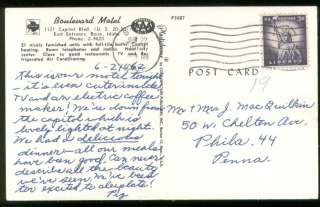 Boulevard Motel
1121 Capitol Blvd. (U. S. 20-30)
East Entrance, Boise, Idaho
Phone: 2-4631
21 nicely furnished units with full tile baths. Central
heating. Room telephones and radios.
Close to good restaurants. TV and
frigerated Air Conditioning.
P3087
POST CARD
6-21-62
This is our motel tonight
- it's even cuter inside
TV and an electric coffee
maker! We're down from
the capitol which is
lovely lighted at night.
We had a delicious
dinner - all our meals
have been good. Can never
describe all the beauty
we've seen. We've been
too excited to sleep late!
Peg
Mr + Mrs J. Mac
50 W. Chelton Ave.
Phila. 44
Penna.
19